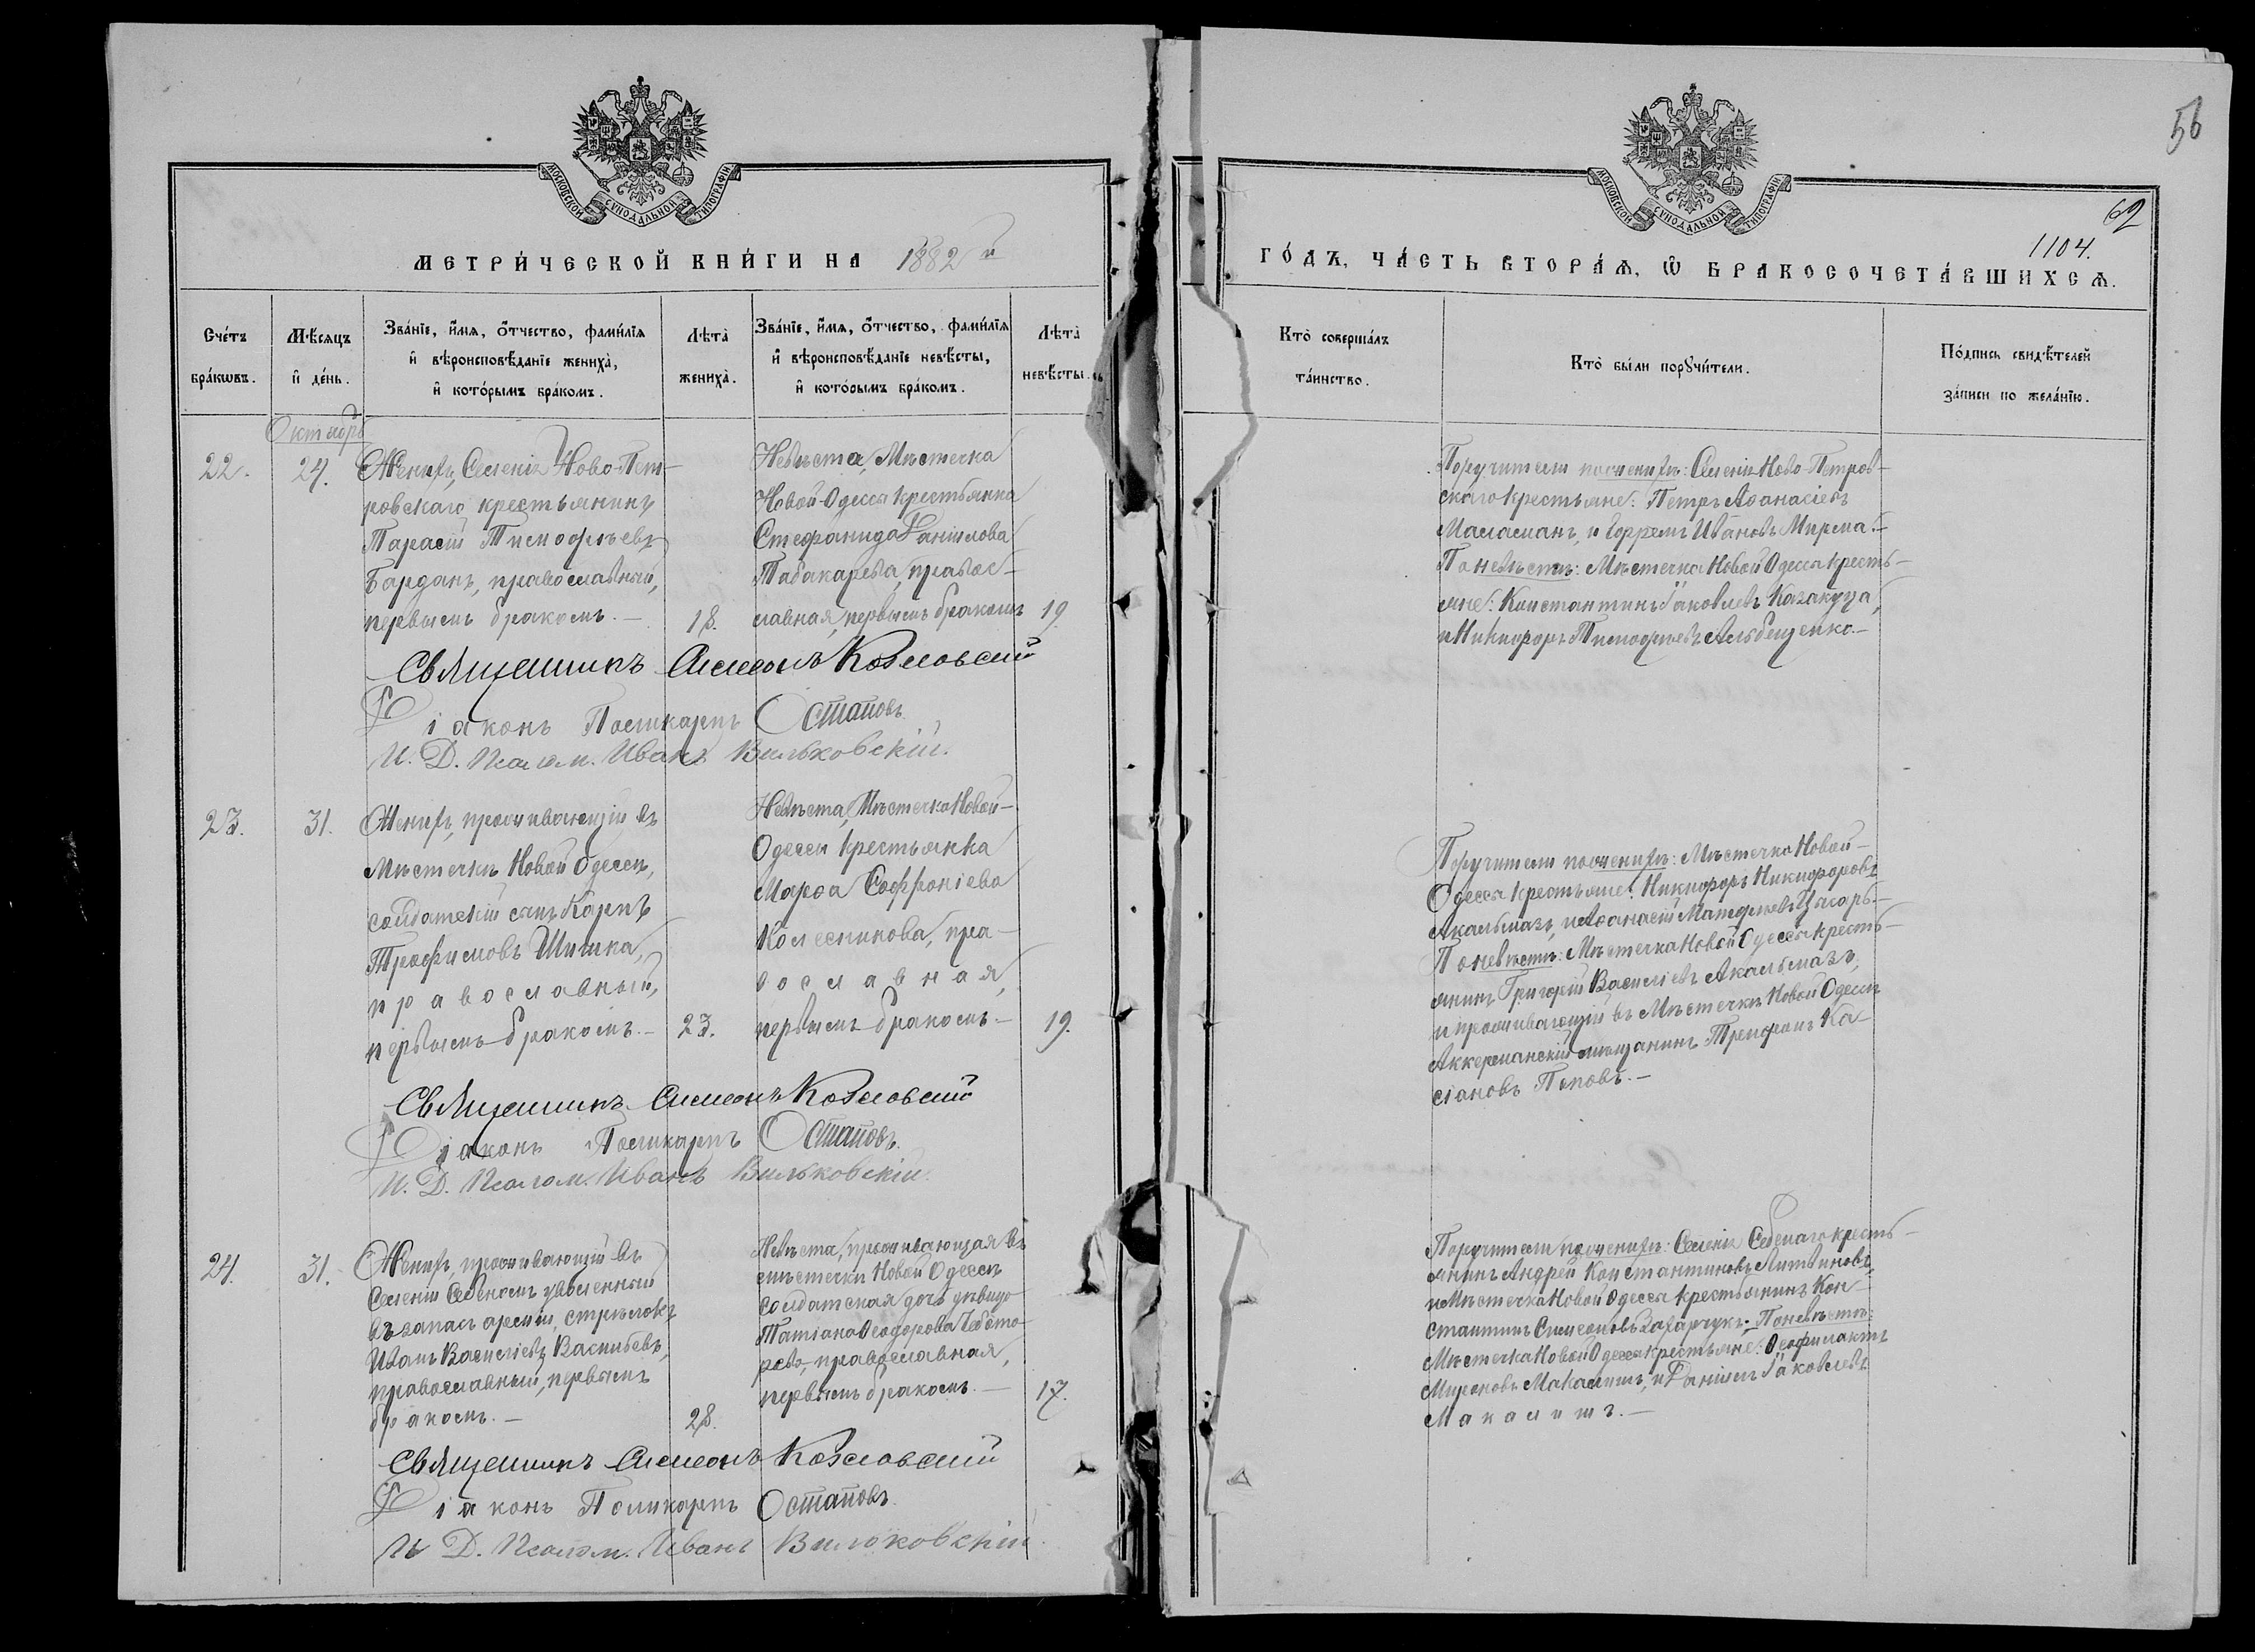 МОСКОВСКОЙ СѴНОДАЛЬНОЙ ТИПОГРАФІИ.
МЕТРИ́ЧЕСКОЙ КНИ́ГИ НА 1882 й
Сче́тъ бра́кѡвъ.
Мѣ́сяцъ и҆ де́нь.
Зва́нїе, и҆́мя, ѻ҆́тчество, фами́лїя
и҆ вѣроисповѣ́данїе жениха̀,
и҆ кото́рымъ бра́комъ.
Лѣта̀ жениха̀.
Зва́нїе, и҆́мя, ѻ҆́тчество, фами́лїя
и҆ вѣроисповѣ́данїе невѣ́сты,
и҆ кото́рымъ бра́комъ.
Лѣта̀ невѣ́сты.
Октябрь
22.
24.
Женихъ, Селенія Ново-Пет-
ровскаго крестьянинъ
Тарасій Тимофѣевъ
Барданъ, православный,
первымъ бракомъ.—
18.
Невѣста, Мѣстечка
Новой-Одессы крестьянка
Стефанида Даніилова
Табакарева, правос-
лавная, первымъ бракомъ
19.
Священникъ Симеонъ Козловскій
Діаконъ Поликарпъ Остаповъ.
И. Д. Псалом. Иванъ Вильковскій.
23.
31.
Женихъ, проживающій въ
Мѣстечкѣ Новой Одессѣ,
солдатскій сынъ Карпъ
Трофимовъ Шишка,
православный,
первымъ бракомъ.—
23.
Невѣста, Мѣстечка Новой-
Одессы крестьянка
Марѳа Софроніева
Колесникова, пра-
вославная,
первымъ бракомъ.—
19.
Священникъ Симеонъ Козловскій
Діаконъ Поликарпъ Остаповъ.
И. Д. Псалом. Иванъ Вильковскій.
24.
31.
Женихъ, проживающій въ
Селеніи Себеномъ уволенный
въ запасъ арміи, стрѣлокъ
Иванъ Василіевъ Васильевъ,
православный, первымъ
бракомъ.—
28.
Невѣста, проживающая въ
мѣстечкѣ Новой Одессѣ
солдатская дочь дѣвица
Татіана Ѳеодорова Чебота-
рева, православная,
первымъ бракомъ.—
17.
Священникъ Симеонъ Козловскій
Діаконъ Поликарпъ Остаповъ.
И. Д. Псалом. Иванъ Вильковскій.
56
МОСКОВСКОЙ СѴНОДАЛЬНОЙ ТИПОГРАФІИ.
62
1104.
ГО́ДЪ, ЧА́СТЬ ВТОРА́Ѧ, Ѡ҆ БРАКОСОЧЕТА́ВШИХСѦ.
Кто̀ соверша́лъ та́инство.
Кто̀ бы́ли порꙋчи́тели.
По́дпись свидѣ́телей за́писи по жела́нїю.
Поручители по женихѣ: Селенія Ново-Петров-
скаго крестьяне: Петръ Аѳанасіевъ
Маламанъ, и Ефремъ Ивановъ Мирма.—
По невѣстѣ: Мѣстечка Новой Одессы кресть-
яне: Константинъ Іаковлевъ Казакуца,
и Никифоръ Тимофѣевъ Альбещенко.—
Поручители по женихѣ: Мѣстечка Новой-
Одессы крестьяне: Никифоръ Никифоровъ
Акальмазъ, и Аѳанасій Матѳѣевъ Цыгорь.—
По невѣстѣ: Мѣстечка Новой Одессы кресть-
янинъ Григорій Василіевъ Акальмазъ,
и проживающій въ Мѣстечкѣ Новой Одессѣ
Аккерманскій мѣщанинъ Трифонъ Ка-
сіановъ Поповъ.—
Поручители по женихѣ: Селенія Себенаго кресть-
янинъ Андрей Константиновъ Литвиновъ,
и Мѣстечка Новой Одессы крестьянинъ Кон-
стантинъ Симеоновъ Захарчукъ. По невѣстѣ:
Мѣстечка Новой Одессы крестьяне: Ѳеофилактъ
Мироновъ Макалишъ, и Даніилъ Іаковлевъ
Макалишъ.—